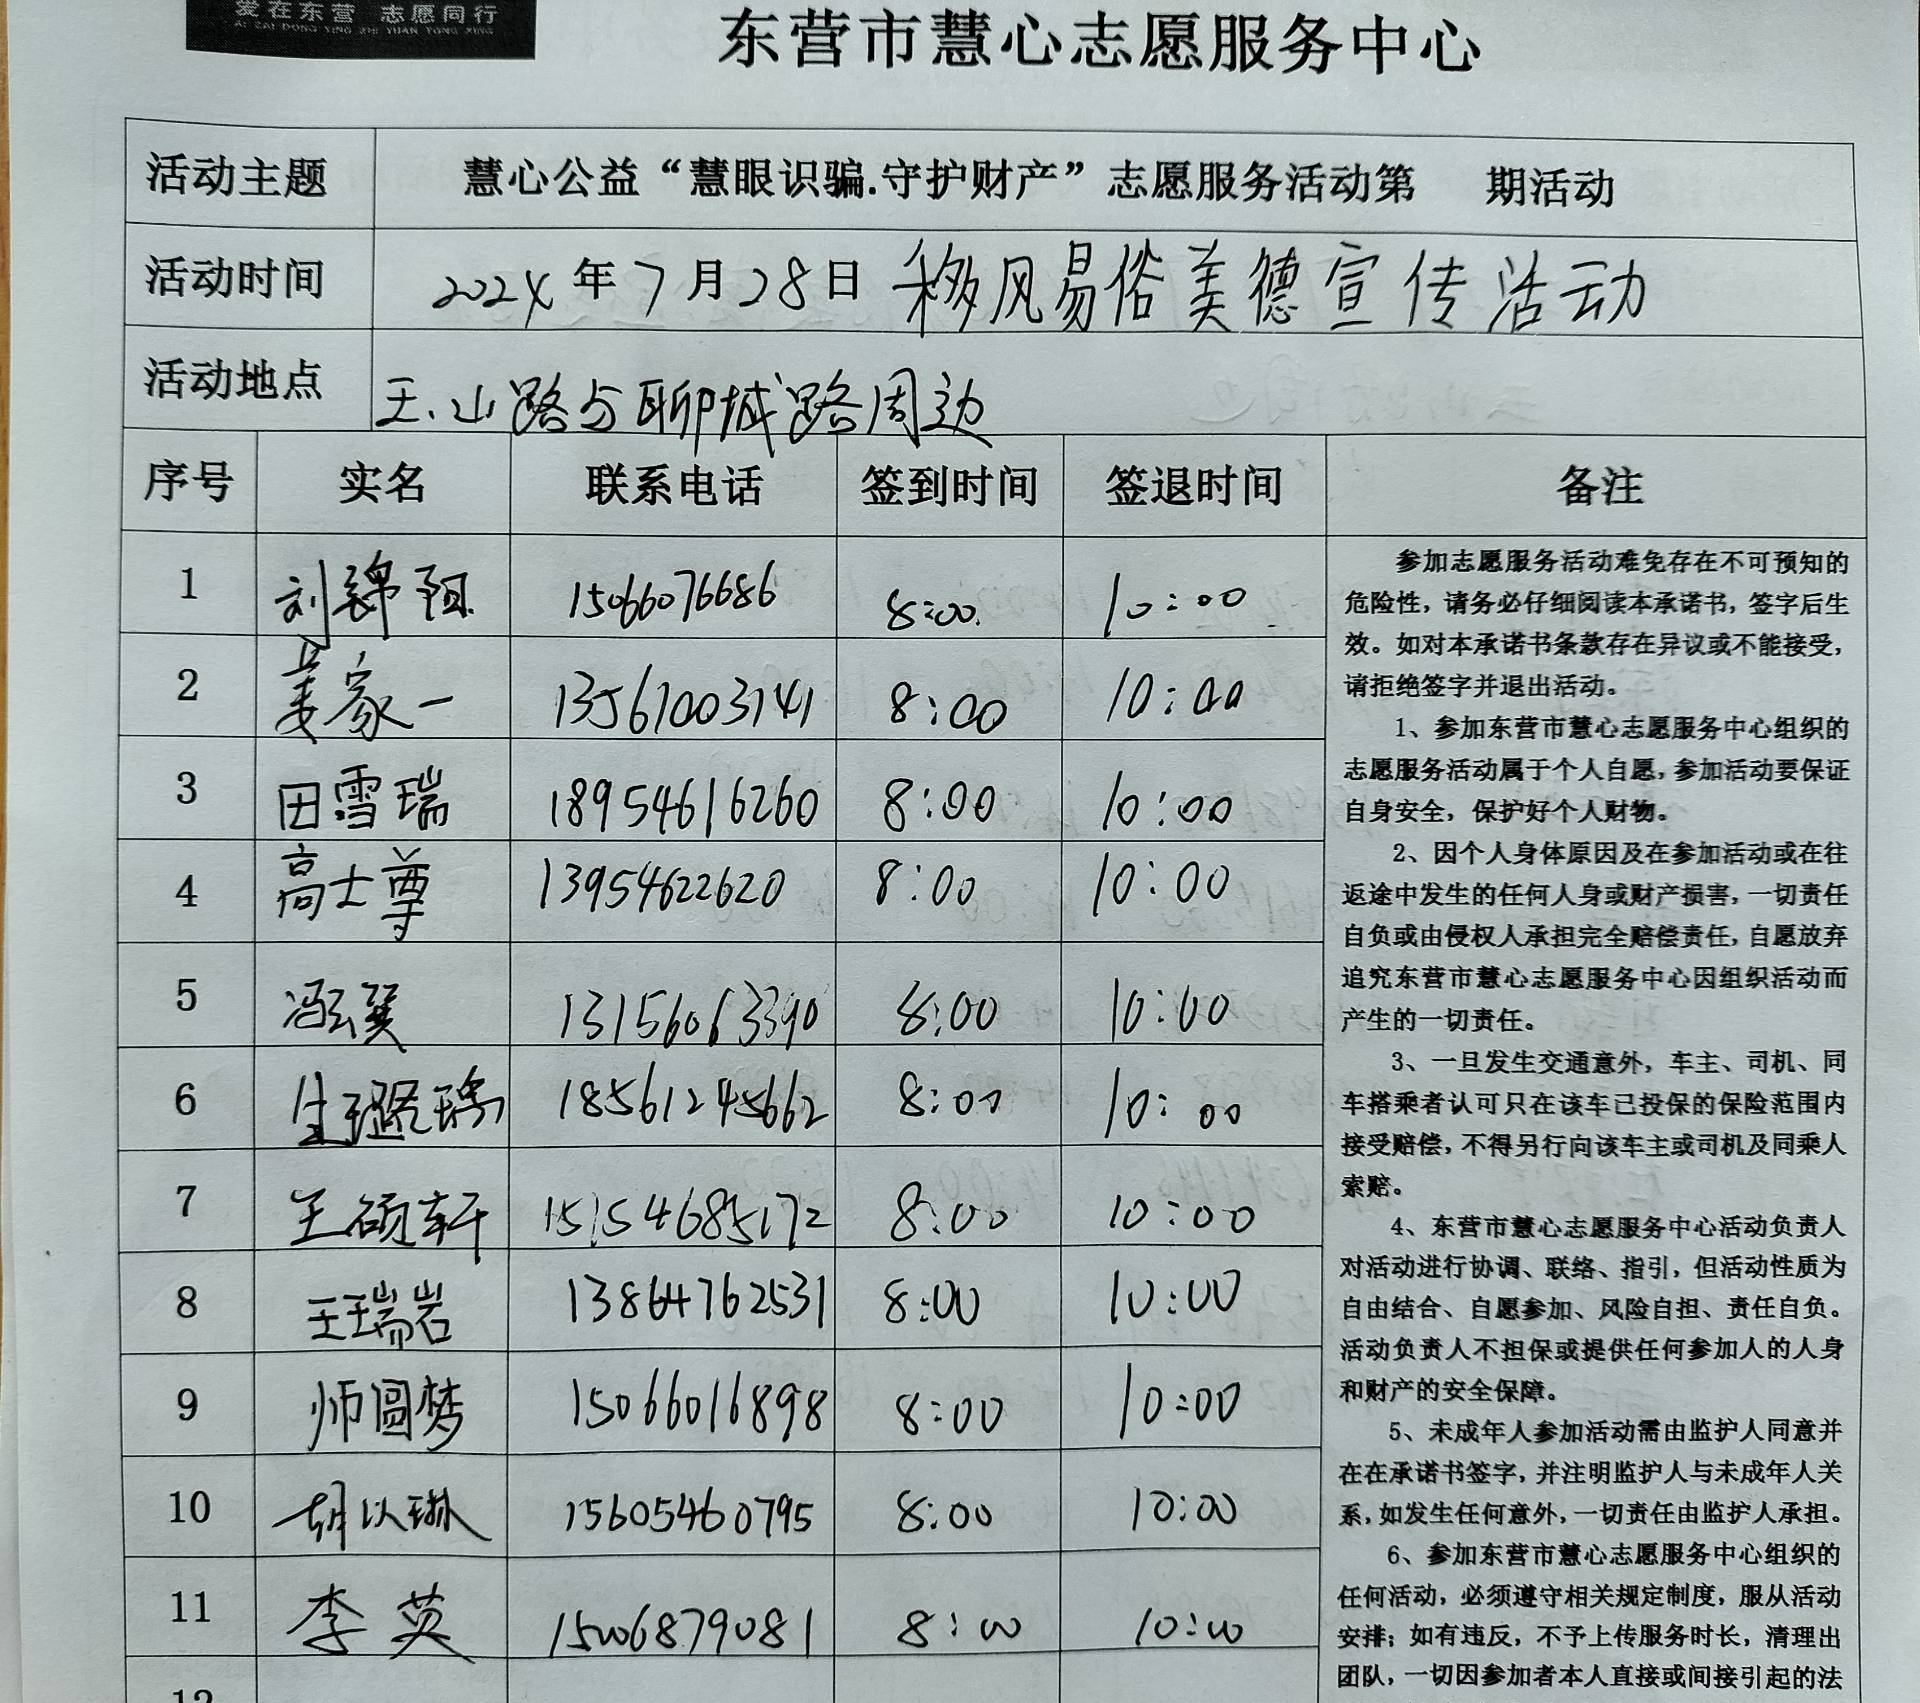 爱在东营 志愿同行
AI ZAI DONG YING ZHI YUAN TONG XING
东营市慧心志愿服务中心
活动主题 慧心公益“慧眼识骗.守护财产”志愿服务活动第 期活动
活动时间 2024年7月28日 移风易俗美德宣传活动
活动地点 玉山路与聊城路周边
序号 实名 联系电话 签到时间 签退时间 备注
1 刘锦阳 15066076686 8:00 10:00
2 姜家一 13561003141 8:00 10:00
3 田雪瑞 18954616260 8:00 10:00
4 高士尊 13954622620 8:00 10:00
5 冯云巽 13156063390 8:00 10:00
6 生璐瑀 18561245662 8:00 10:00
7 王硕轩 15154685172 8:00 10:00
8 王瑞岩 13864762531 8:00 10:00
9 师圆梦 15066016898 8:00 10:00
10 胡以琳 15605460795 8:00 10:00
11 李英 15006879081 8:00 10:00
12
参加志愿服务活动难免存在不可预知的
危险性，请务必仔细阅读本承诺书，签字后生
效。如对本承诺书条款存在异议或不能接受，
请拒绝签字并退出活动。
1、参加东营市慧心志愿服务中心组织的
志愿服务活动属于个人自愿，参加活动要保证
自身安全，保护好个人财物。
2、因个人身体原因及在参加活动或在往
返途中发生的任何人身或财产损害，一切责任
自负或由侵权人承担完全赔偿责任，自愿放弃
追究东营市慧心志愿服务中心因组织活动而
产生的一切责任。
3、一旦发生交通意外，车主、司机、同
车搭乘者认可只在该车已投保的保险范围内
接受赔偿，不得另行向该车主或司机及同乘人
索赔。
4、东营市慧心志愿服务中心活动负责人
对活动进行协调、联络、指引，但活动性质为
自由结合、自愿参加、风险自担、责任自负。
活动负责人不担保或提供任何参加人的人身
和财产的安全保障。
5、未成年人参加活动需由监护人同意并
在在承诺书签字，并注明监护人与未成年人关
系，如发生任何意外，一切责任由监护人承担。
6、参加东营市慧心志愿服务中心组织的
任何活动，必须遵守相关规定制度，服从活动
安排；如有违反，不予上传服务时长，清理出
团队，一切因参加者本人直接或间接引起的法